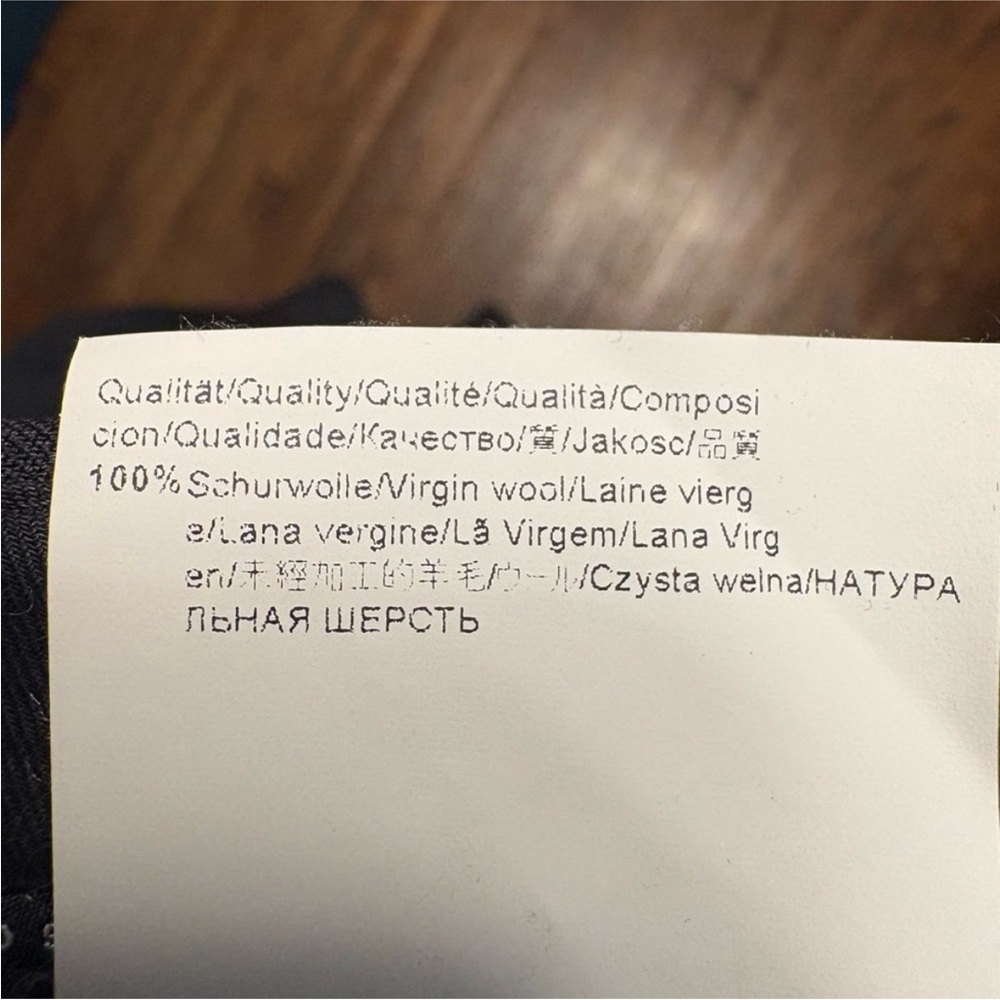 Qualität/Quality/Qualité/Qualità/Composi
cion/Qualidade/Качество/質/Jakosc/品質
100% Schurwolle/Virgin wool/Laine vierg
e/Lana vergine/Lã Virgem/Lana Virg
en/未經加工的羊毛/ウール/Czysta welna/НАТУРА
ЛЬНАЯ ШЕРСТЬ